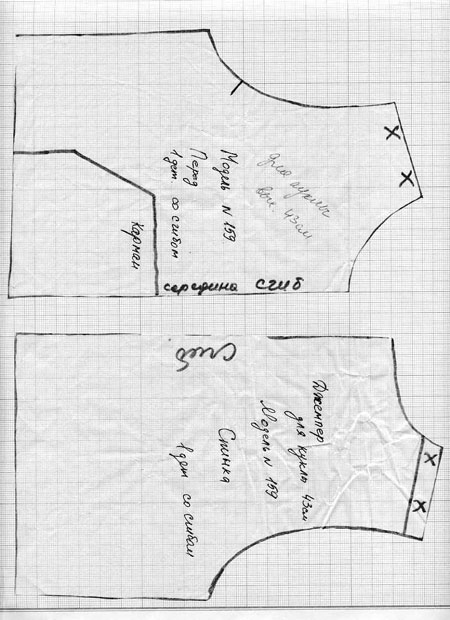 для куклы
выс. 43см
Модель N 159
Перед
1 дет. со сгибом
Карман
середина сгиб
Сгиб.
Джемпер
для куклы 43см
Модель N 159
Спинка
1 дет со сгибом